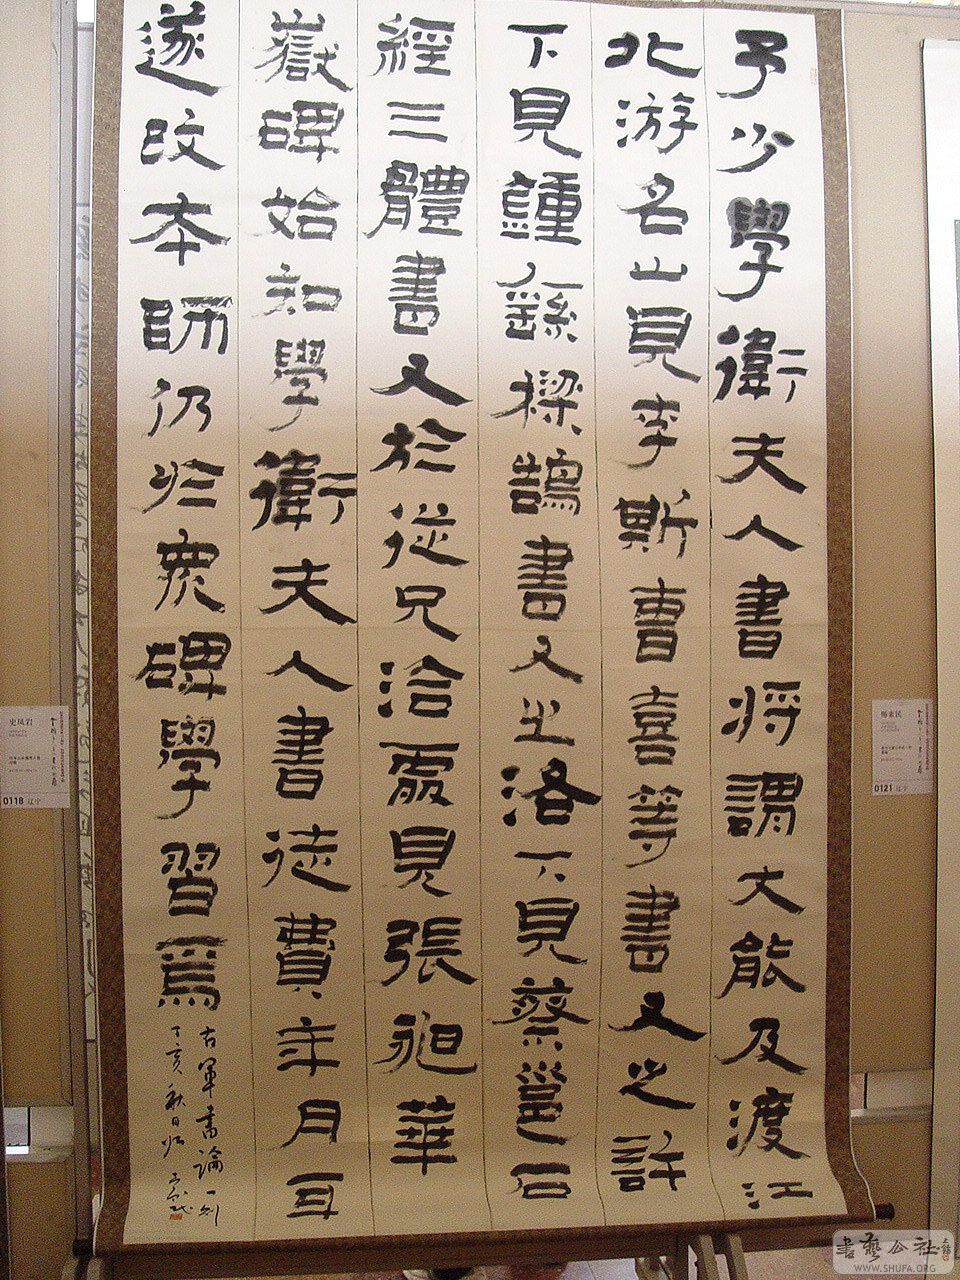 予少學衛夫人書將謂大能及渡江
北游名山見李斯曹喜等書又之許
下見鍾繇梁鵠書又之洛下見蔡邕石
經三體書又於從兄洽處見張昶華
嶽碑始知學衛夫人書徒費年月耳
遂改本師仍於衆碑學習焉
右軍書論一則
丁亥秋日
史凤岩
0118 辽宁
0121 辽宁
書藝公社
WWW.SHUFA.ORG